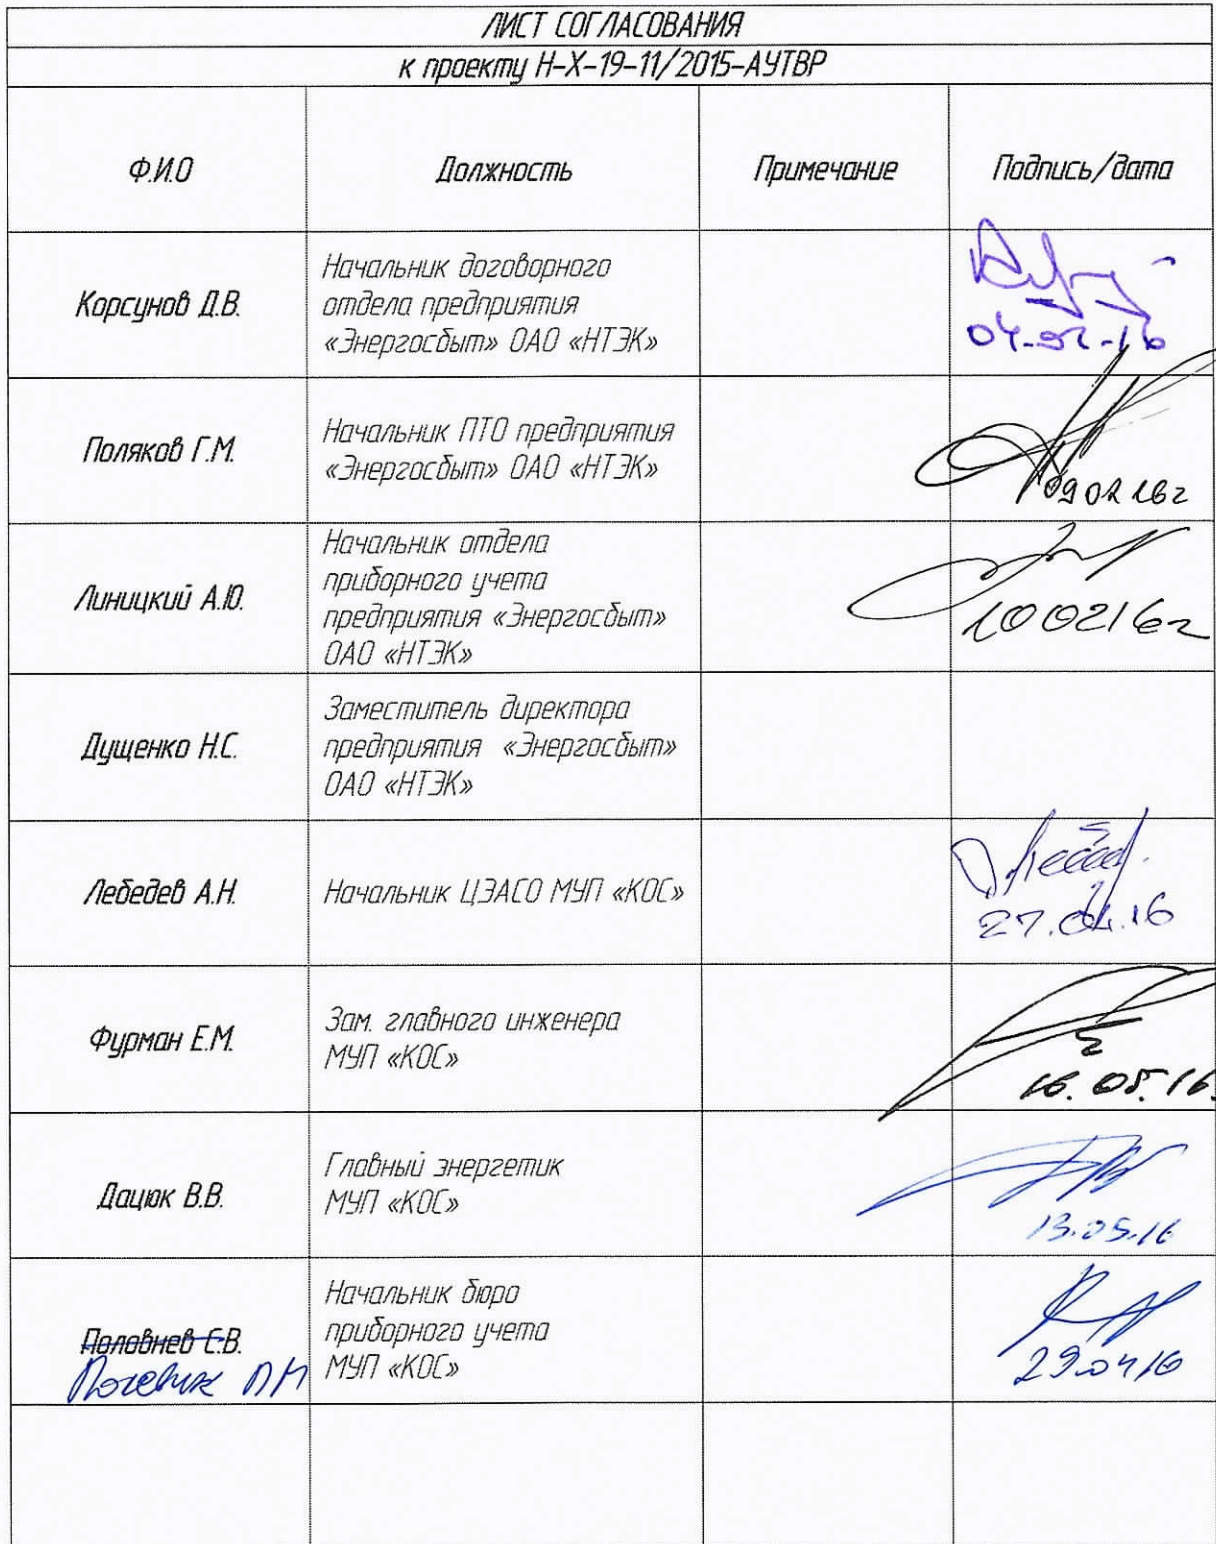 ЛИСТ СОГЛАСОВАНИЯ
к проекту Н-Х-19-11/2015-АУТВР
Ф.И.О
Должность
Примечание
Подпись/дата
Корсунов Д.В.
Начальник договорного
отдела предприятия
«Энергосбыт» ОАО «НТЭК»
Поляков Г.М.
Начальник ПТО предприятия
«Энергосбыт» ОАО «НТЭК»
090216г
Линицкий А.Ю.
Начальник отдела
приборного учета
предприятия «Энергосбыт»
ОАО «НТЭК»
100216г
Дущенко Н.С.
Заместитель директора
предприятия «Энергосбыт»
ОАО «НТЭК»
Лебедев А.Н.
Начальник ЦЭАСО МУП «КОС»
27.04.16
Фурман Е.М.
Зам. главного инженера
МУП «КОС»
16.05.16
Дацюк В.В.
Главный энергетик
МУП «КОС»
13.05.16
Половнев С.В.
Начальник бюро
приборного учета
МУП «КОС»
290416